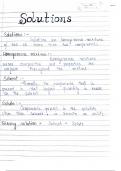 Solutions
Solutions :-
Solutions are homogeneous mixtures
of two or more than two components.
Homogeneous mixture :-
Homogeneous mixture
whose composition and properties are
uniform throughout the mixture.
Solvent :-
the component that is
present in the largest quantity is known
as the solvent.
Solute :-
Components present in the solution
other than solvent, is known as solute.
Binary solution = Solvent + Solute